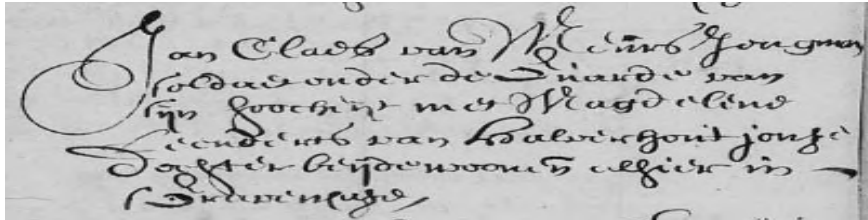 Jan Claes van Meurs Jongman
soldaet onder de Guarde van
sijn hoocheijt met Magdelena
Leenderts van halverhout jonge
dochter beijde woonen alhier in
sGravenhage